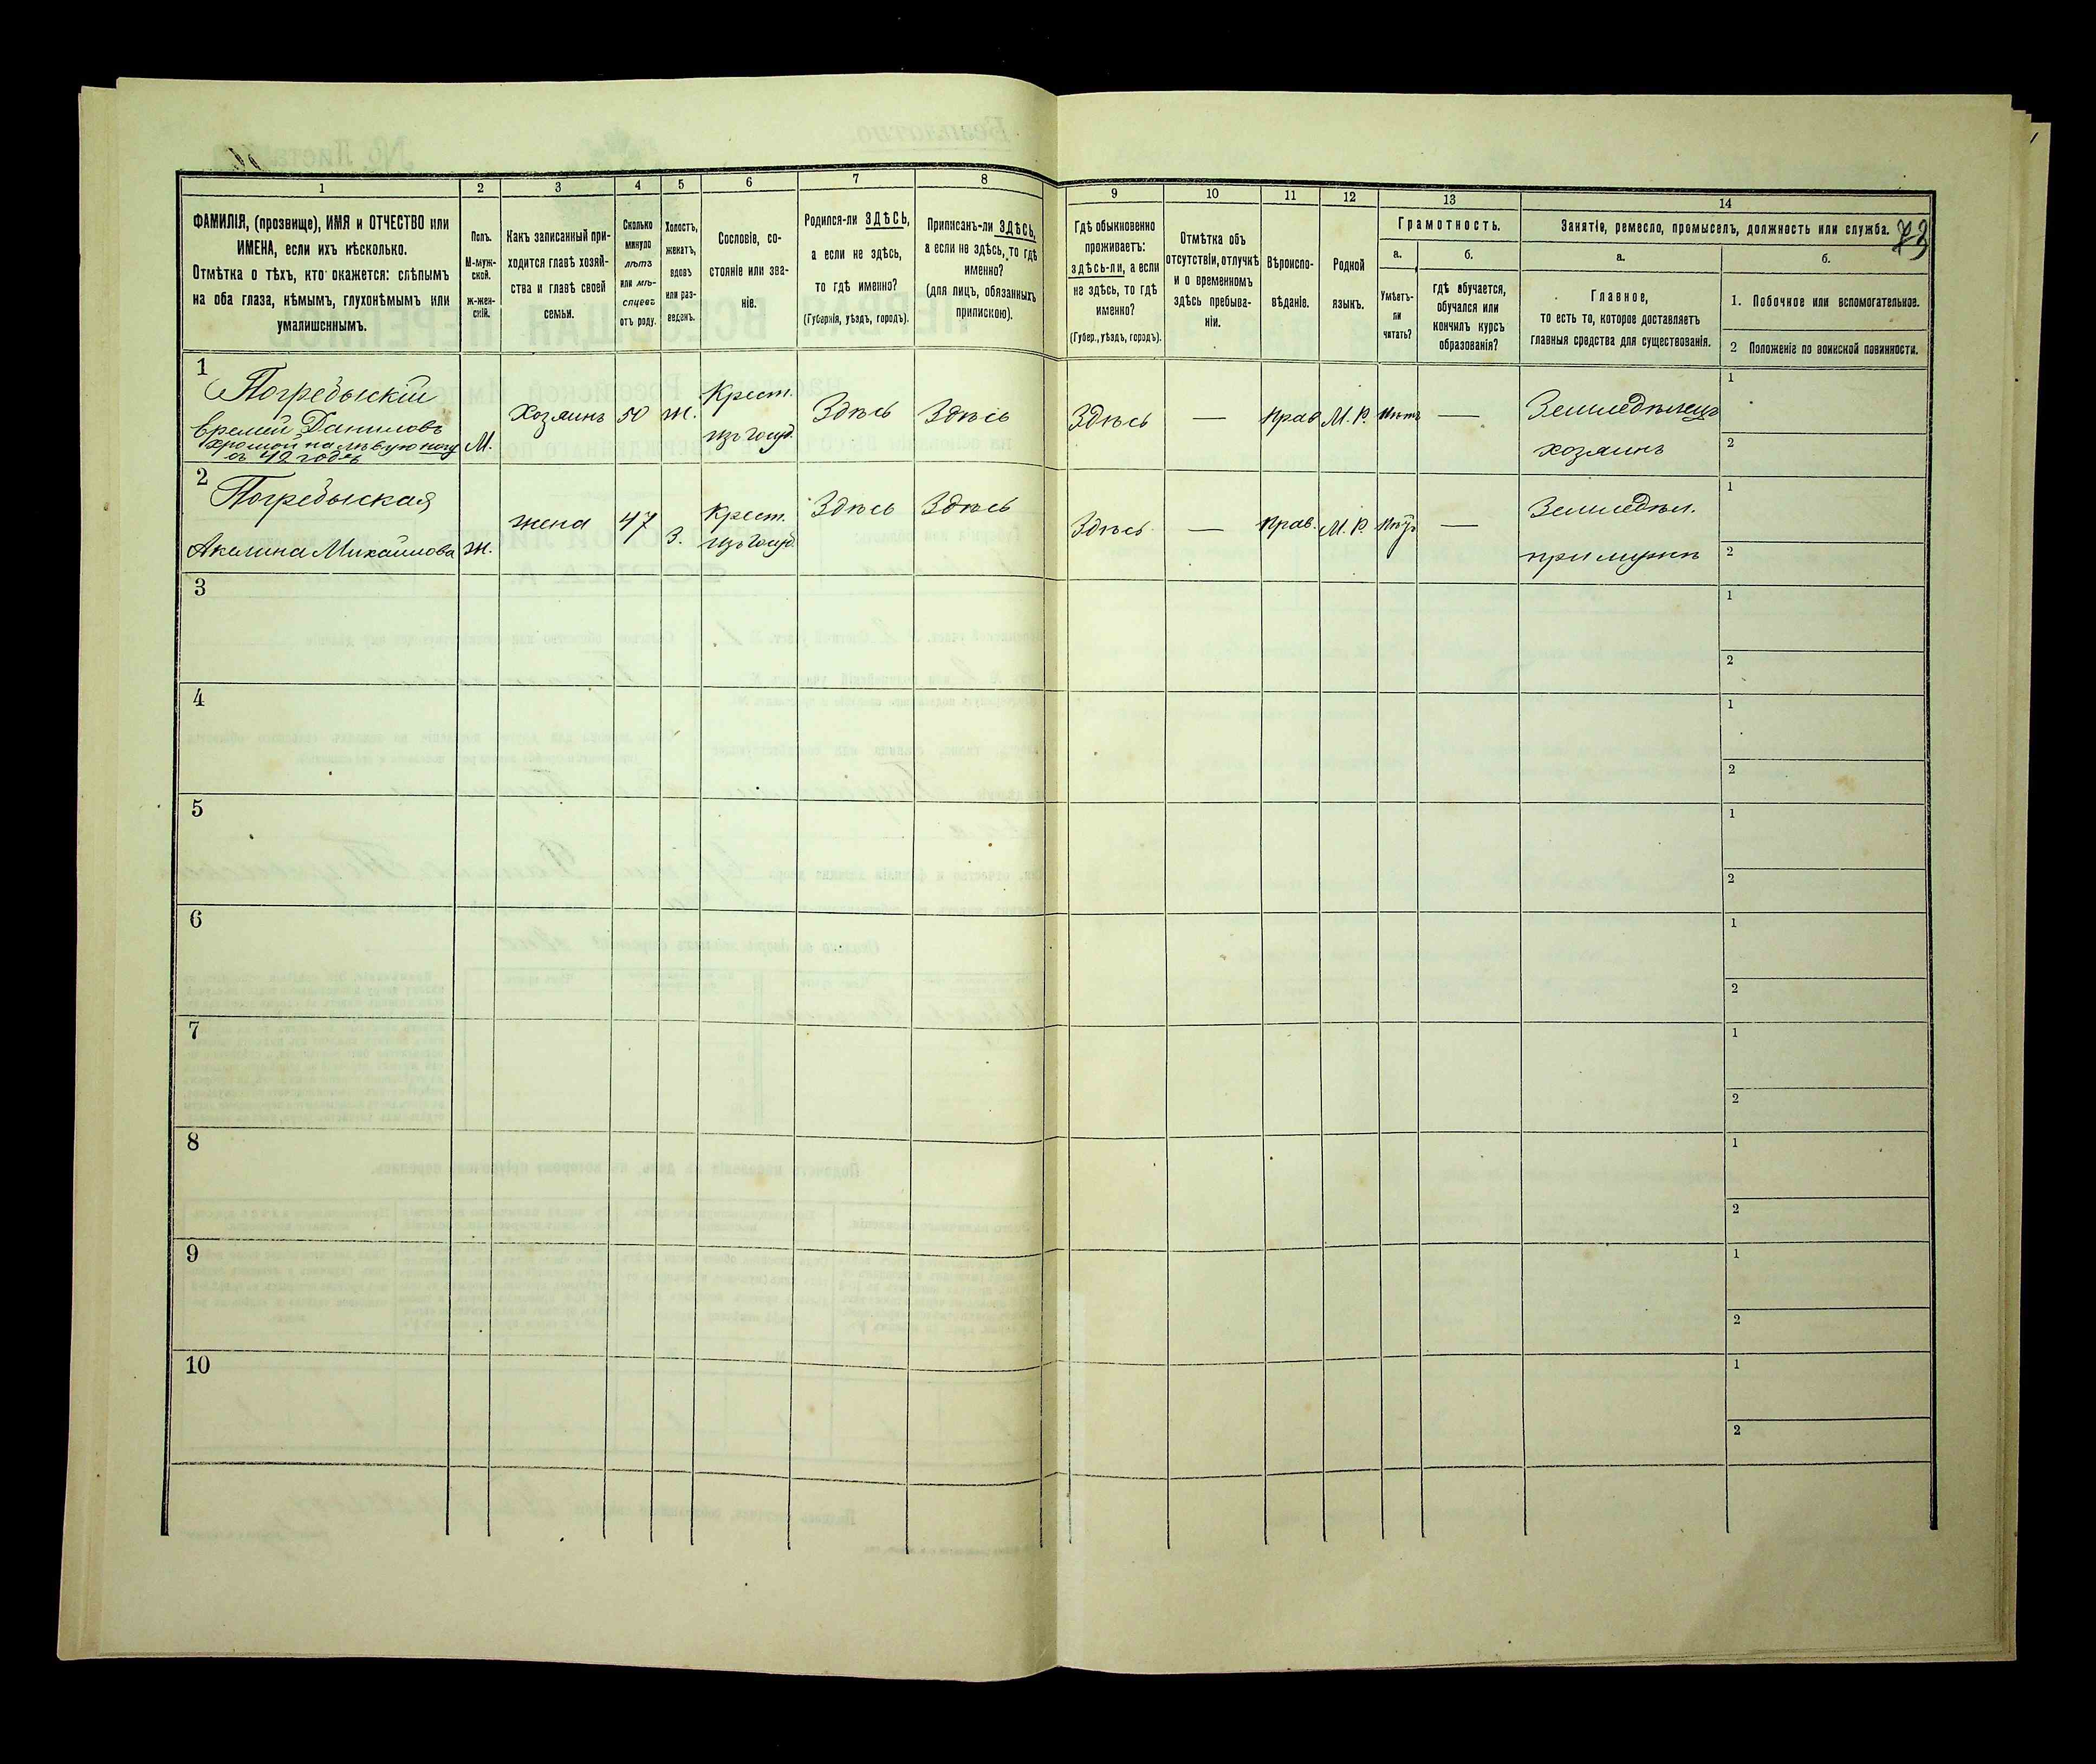 1
2
3
4
5
6
7
8
ФАМИЛІЯ, (прозвище), ИМЯ и ОТЧЕСТВО или
ИМЕНА, если ихъ нѣсколько.
Отмѣтка о тѣхъ, кто окажется: слѣпымъ
на оба глаза, нѣмымъ, глухонѣмымъ или
умалишеннымъ.
Полъ.
М-муж-
ской.
ж-жен-
скій.
Какъ записанный при-
ходится главѣ хозяй-
ства и главѣ своей
семьи.
Сколько
минуло
лѣтъ
или мѣ-
сяцевъ
отъ роду.
Холостъ,
женатъ,
вдовъ
или раз-
веденъ.
Сословіе, со-
стояніе или зва-
ніе.
Родился-ли ЗДѢСЬ,
а если не здѣсь,
то гдѣ именно?
(Губернія, уѣздъ, городъ).
Приписанъ-ли ЗДѢСЬ,
а если не здѣсь, то гдѣ
именно?
(для лицъ, обязанныхъ
припискою).
9
10
11
12
13
14
Гдѣ обыкновенно
проживаетъ:
здѣсь-ли, а если
не здѣсь, то гдѣ
именно?
(Губер., уѣздъ, городъ).
Отмѣтка объ
отсутствіи, отлучкѣ
и о временномъ
здѣсь пребыва-
ніи.
Вѣроиспо-
вѣданіе.
Родной
языкъ.
Грамотность.
а.
Умѣетъ-
ли
читать?
б.
гдѣ обучается,
обучался или
кончилъ курсъ
образованія?
Занятіе, ремесло, промыселъ, должность или служба.
а.
Главное,
то есть то, которое доставляетъ
главныя средства для существованія.
б.
1. Побочное или вспомогательное.
2 Положеніе по воинской повинности.
1
Погребыскій
Еремій Даниловъ
хромой на лѣвую ногу
съ 42 годъ
М.
Хозяинъ
50
Ж.
Крест.
изъ госуд.
Здѣсь
Здѣсь
Здѣсь
—
Прав
М. Р.
Нѣтъ
—
Земледѣлецъ
хозяинъ
1
2
2
Погребыская
Акилина Михайлова
Ж.
жена
47
З.
Крест.
изъ госуд.
Здѣсь
Здѣсь
Здѣсь
—
Прав.
М. Р.
Нѣтъ
—
Земледѣл.
при мужѣ
1
2
3
1
2
4
1
2
5
1
2
6
1
2
7
1
2
8
1
2
9
1
2
10
1
2